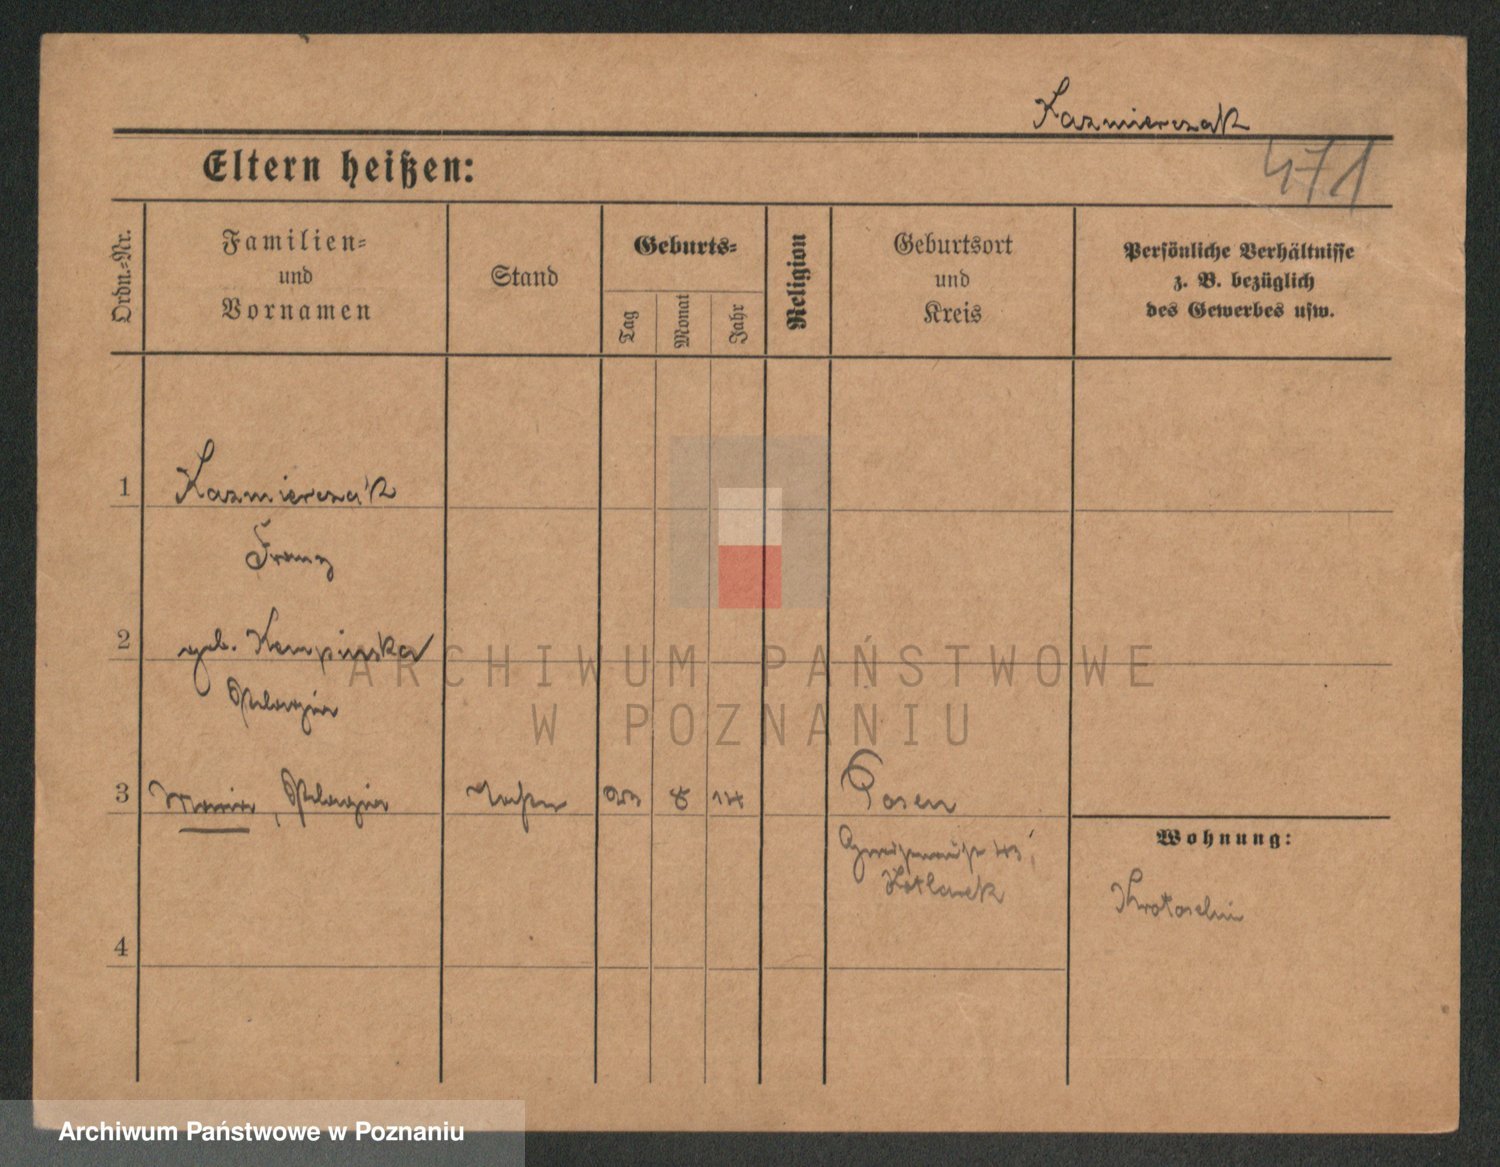 Kazmierczak
471
Eltern heißen:
Ordn.=Nr.
Familien=
und
Vornamen
Stand
Geburts=
Tag
Monat
Jahr
Religion
Geburtsort
und
Kreis
Persönliche Verhältnisse
z. B. bezüglich
des Gewerbes usw.
1 Kazmierczak
Franz
2 geb. Kempinska
Pelagia
3 Maria, Pelagia Tochter 8 14 Posen
Wohnung:
Krotoschin
4
ARCHIWUM PAŃSTWOWE
W POZNANIU
Archiwum Państwowe w Poznaniu